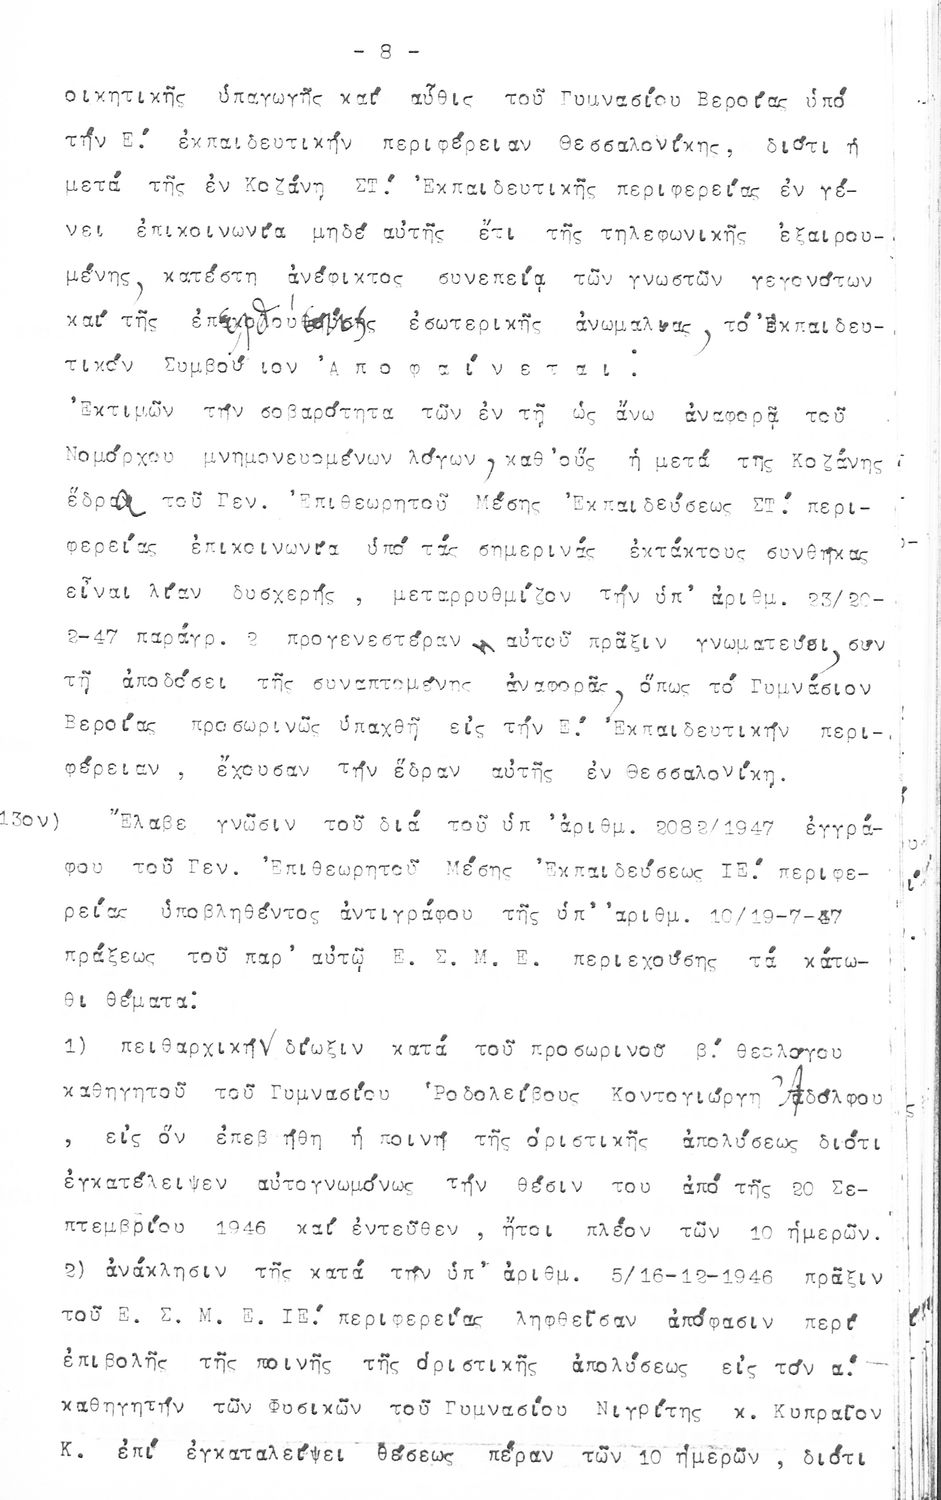 - 8 -
οικητικῆς ὑπαγωγῆς καί αὖθις τοῦ Γυμνασίου Βεροίας ὑπό
τήν Ε΄ ἐκπαιδευτικήν περιφέρειαν Θεσσαλονίκης, διότι ἡ
μετά τῆς ἐν Κοζάνῃ ΣΤ΄ Ἐκπαιδευτικῆς περιφερείας ἐν γέ-
νει ἐπικοινωνία μηδέ αὐτῆς ἔτι τῆς τηλεφωνικῆς ἐξαιρου-
μένης, κατέστη ἀνέφικτος συνεπείᾳ τῶν γνωστῶν γεγονότων
καί τῆς ἐσωτερικῆς ἀνωμαλίας, τό Ἐκπαιδευ-
τικόν Συμβούλιον Ἀ π ο φ α ί ν ε τ α ι :
Ἐκτιμῶν τήν σοβαρότητα τῶν ἐν τῇ ὡς ἄνω ἀναφορᾷ τοῦ
Νομάρχου μνημονευομένων λόγων, καθ'οὕς ἡ μετά της Κοζάνης
ἕδρας τοῦ Γεν. Ἐπιθεωρητοῦ Μέσης Ἐκπαιδεύσεως ΣΤ΄ περι-
φερείας ἐπικοινωνία ὑπό τάς σημερινάς ἐκτάκτους συνθήκας
εἶναι λίαν δυσχερής , μεταρρυθμίζον τήν ὑπ' ἀριθμ. 23/20-
2-47 παράγρ. 2 προγενεστέραν αὐτοῦ πρᾶξιν γνωματεύει, συν
τῇ ἀποδόσει τῆς συναπτομένης ἀναφορᾶς, ὅπως τό Γυμνάσιον
Βεροίας προσωρινῶς ὑπαχθῇ εἰς τήν Ε΄ Ἐκπαιδευτικήν περι-
φέρειαν , ἔχουσαν τήν ἕδραν αὐτῆς ἐν Θεσσαλονίκῃ.
13ον) Ἔλαβε γνῶσιν τοῦ διά τοῦ ὑπ 'ἀριθμ. 2082/1947 ἐγγρά-
φου τοῦ Γεν. Ἐπιθεωρητοῦ Μέσης Ἐκπαιδεύσεως ΙΕ΄ περιφε-
ρείας ὑποβληθέντος ἀντιγράφου τῆς ὑπ' 'αριθμ. 10/19-7-47
πράξεως τοῦ παρ' αὐτῷ Ε. Σ. Μ. Ε. περιεχούσης τά κάτω-
θι θέματα:
1) πειθαρχικήν δίωξιν κατά τοῦ προσωρινοῦ β΄ θεολόγου
καθηγητοῦ τοῦ Γυμνασίου Ῥοδολείβους Κοντογιώργη Ἀδόλφου
, εἰς ὅν ἐπεβ ήθη ἡ ποινή τῆς ὁριστικῆς ἀπολύσεως διότι
ἐγκατέλειψεν αὐτογνωμόνως τήν θέσιν του ἀπό τῆς 20 Σε-
πτεμβρίου 1946 καί ἐντεῦθεν , ἤτοι πλέον τῶν 10 ἡμερῶν.
2) ἀνάκλησιν τῆς κατά την ὑπ' ἀριθμ. 5/16-12-1946 πρᾶξιν
τοῦ Ε. Σ. Μ. Ε. ΙΕ΄ περιφερείας ληφθεῖσαν ἀπόφασιν περί
ἐπιβολῆς τῆς ποινῆς τῆς ὁριστικῆς ἀπολύσεως εἰς τόν α΄
καθηγητήν τῶν Φυσικῶν τοῦ Γυμνασίου Νιγρίτης κ. Κυπραῖον
Κ. ἐπί ἐγκαταλείψει θέσεως πέραν τῶν 10 ἡμερῶν , διότι